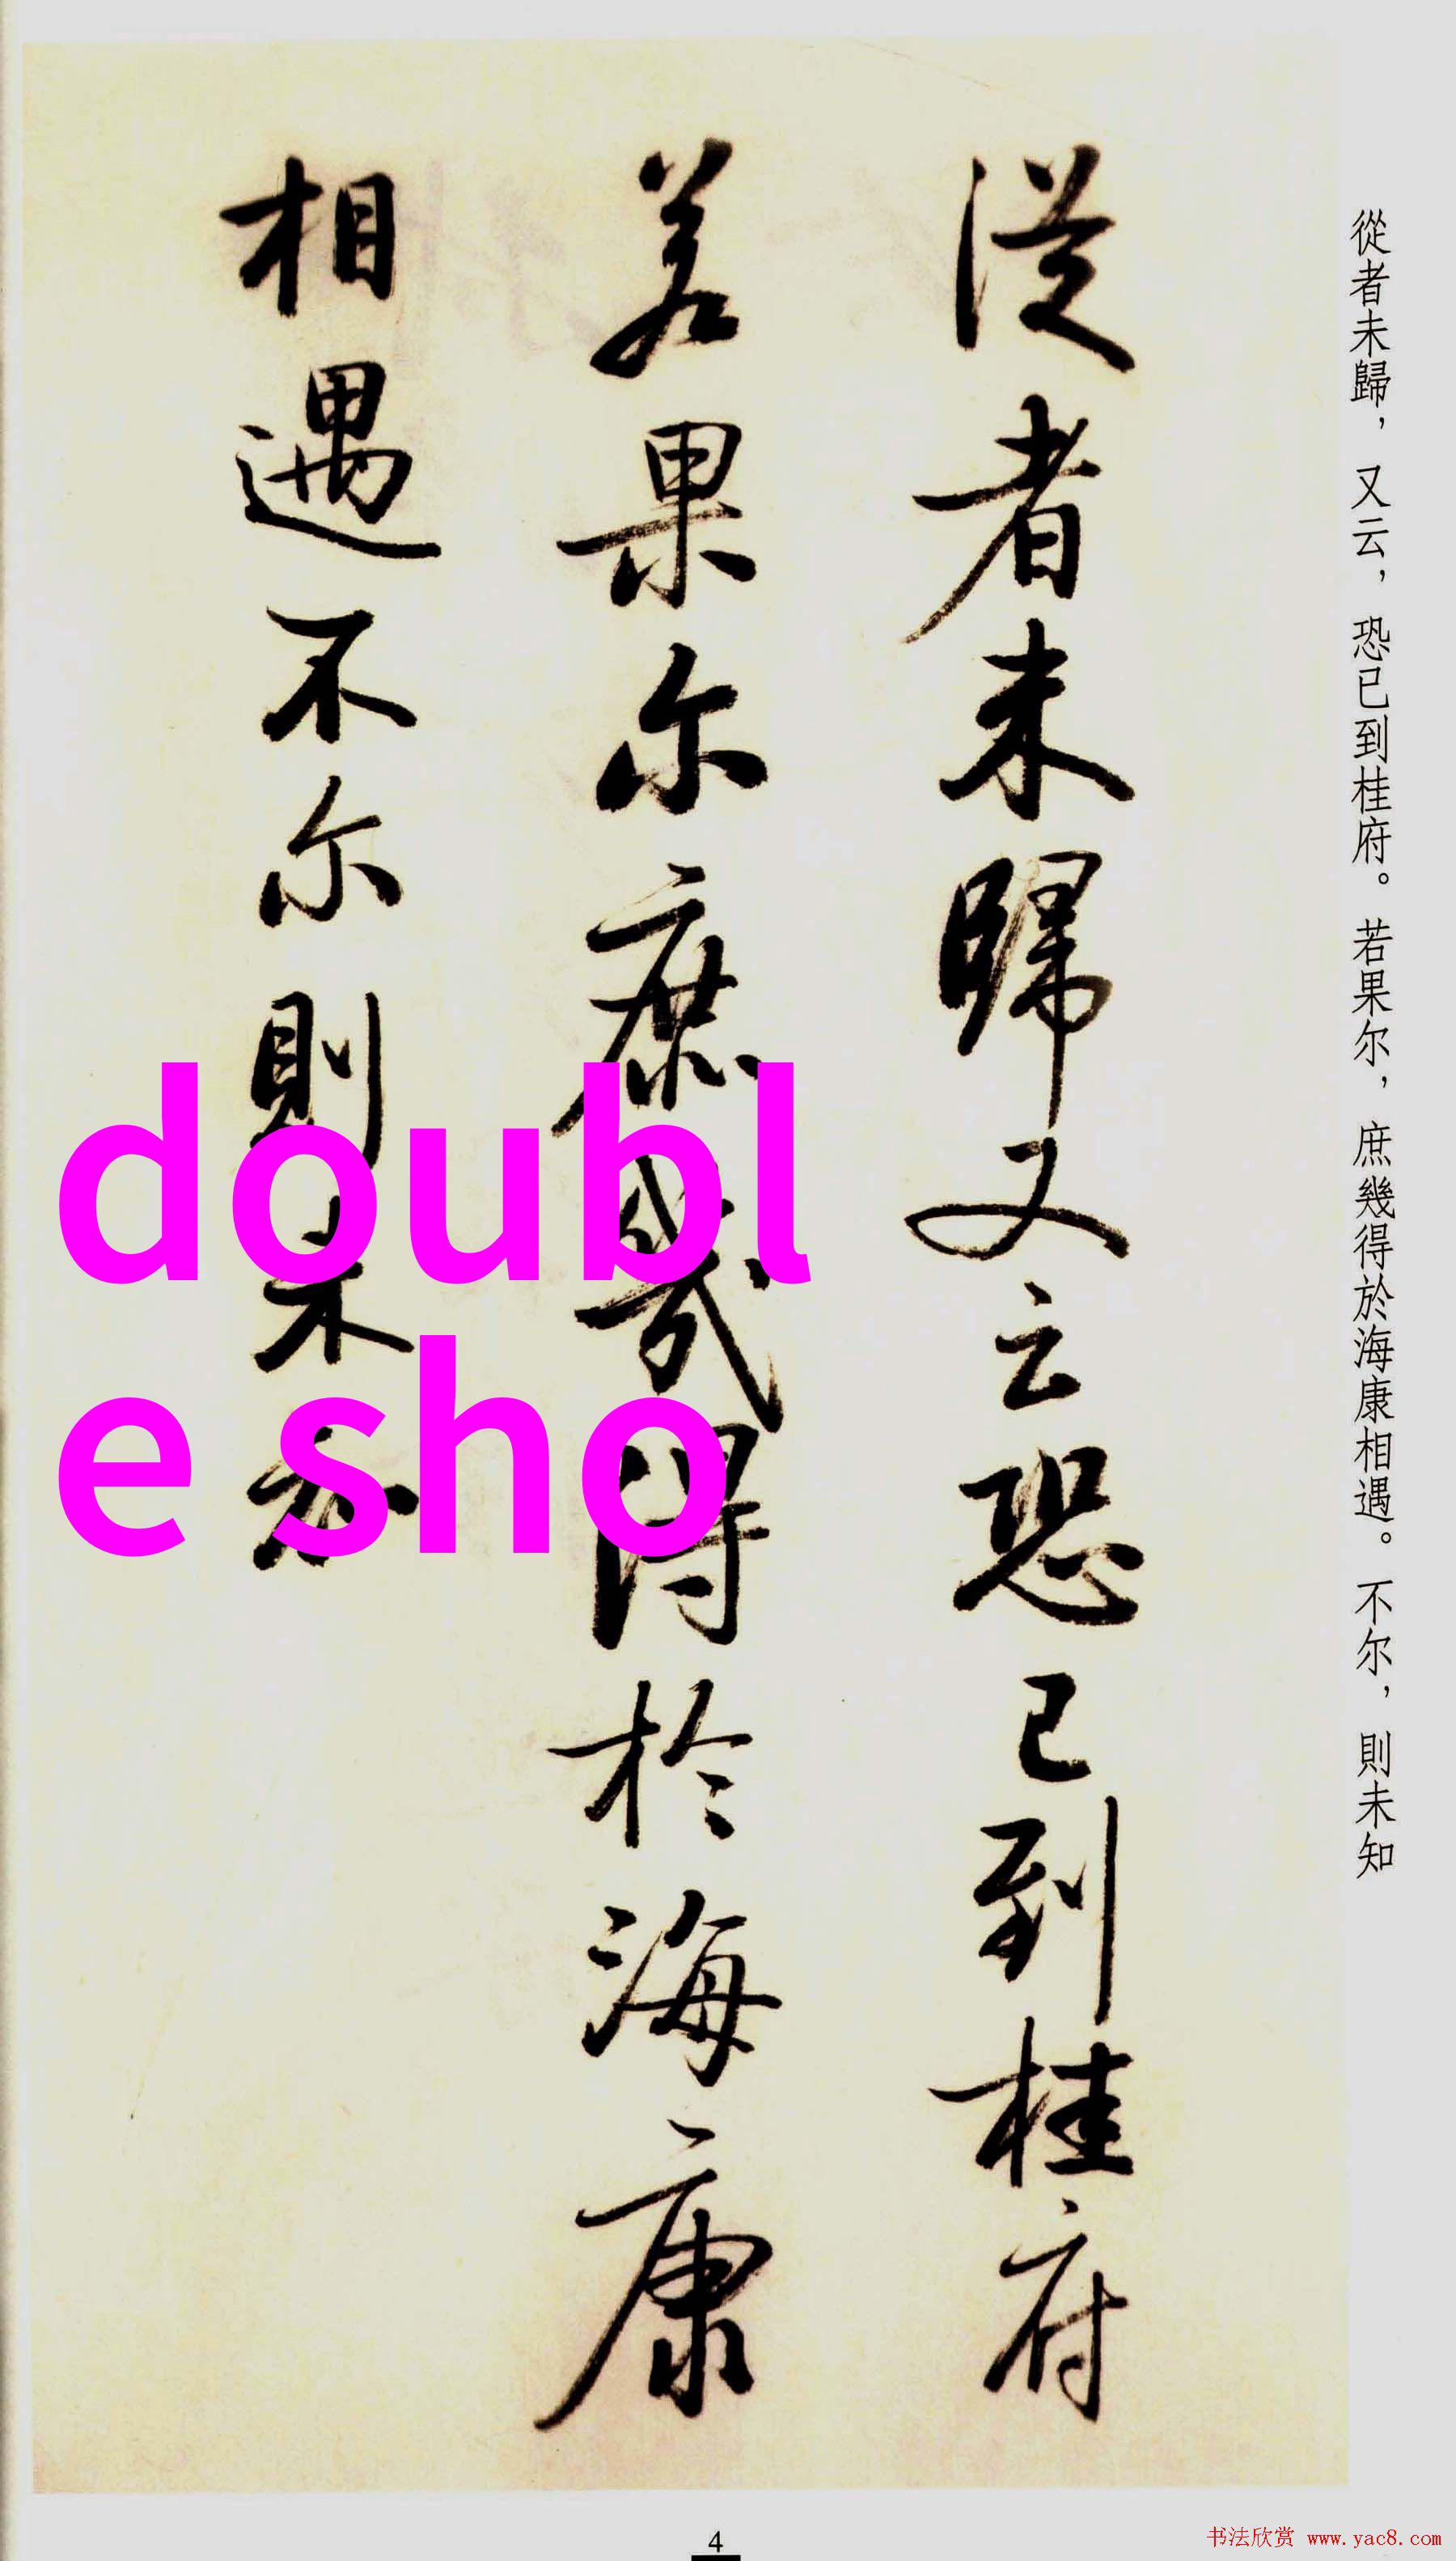 從者未歸，又云，恐已到桂府。若果尔，庶幾得於海康相遇。不尔，則未知
從者未歸又云恐已到桂府
若果尔庶幾得於海康
相遇不尔則未知
doubl
e sho
4
书法欣赏 www.yac8.com